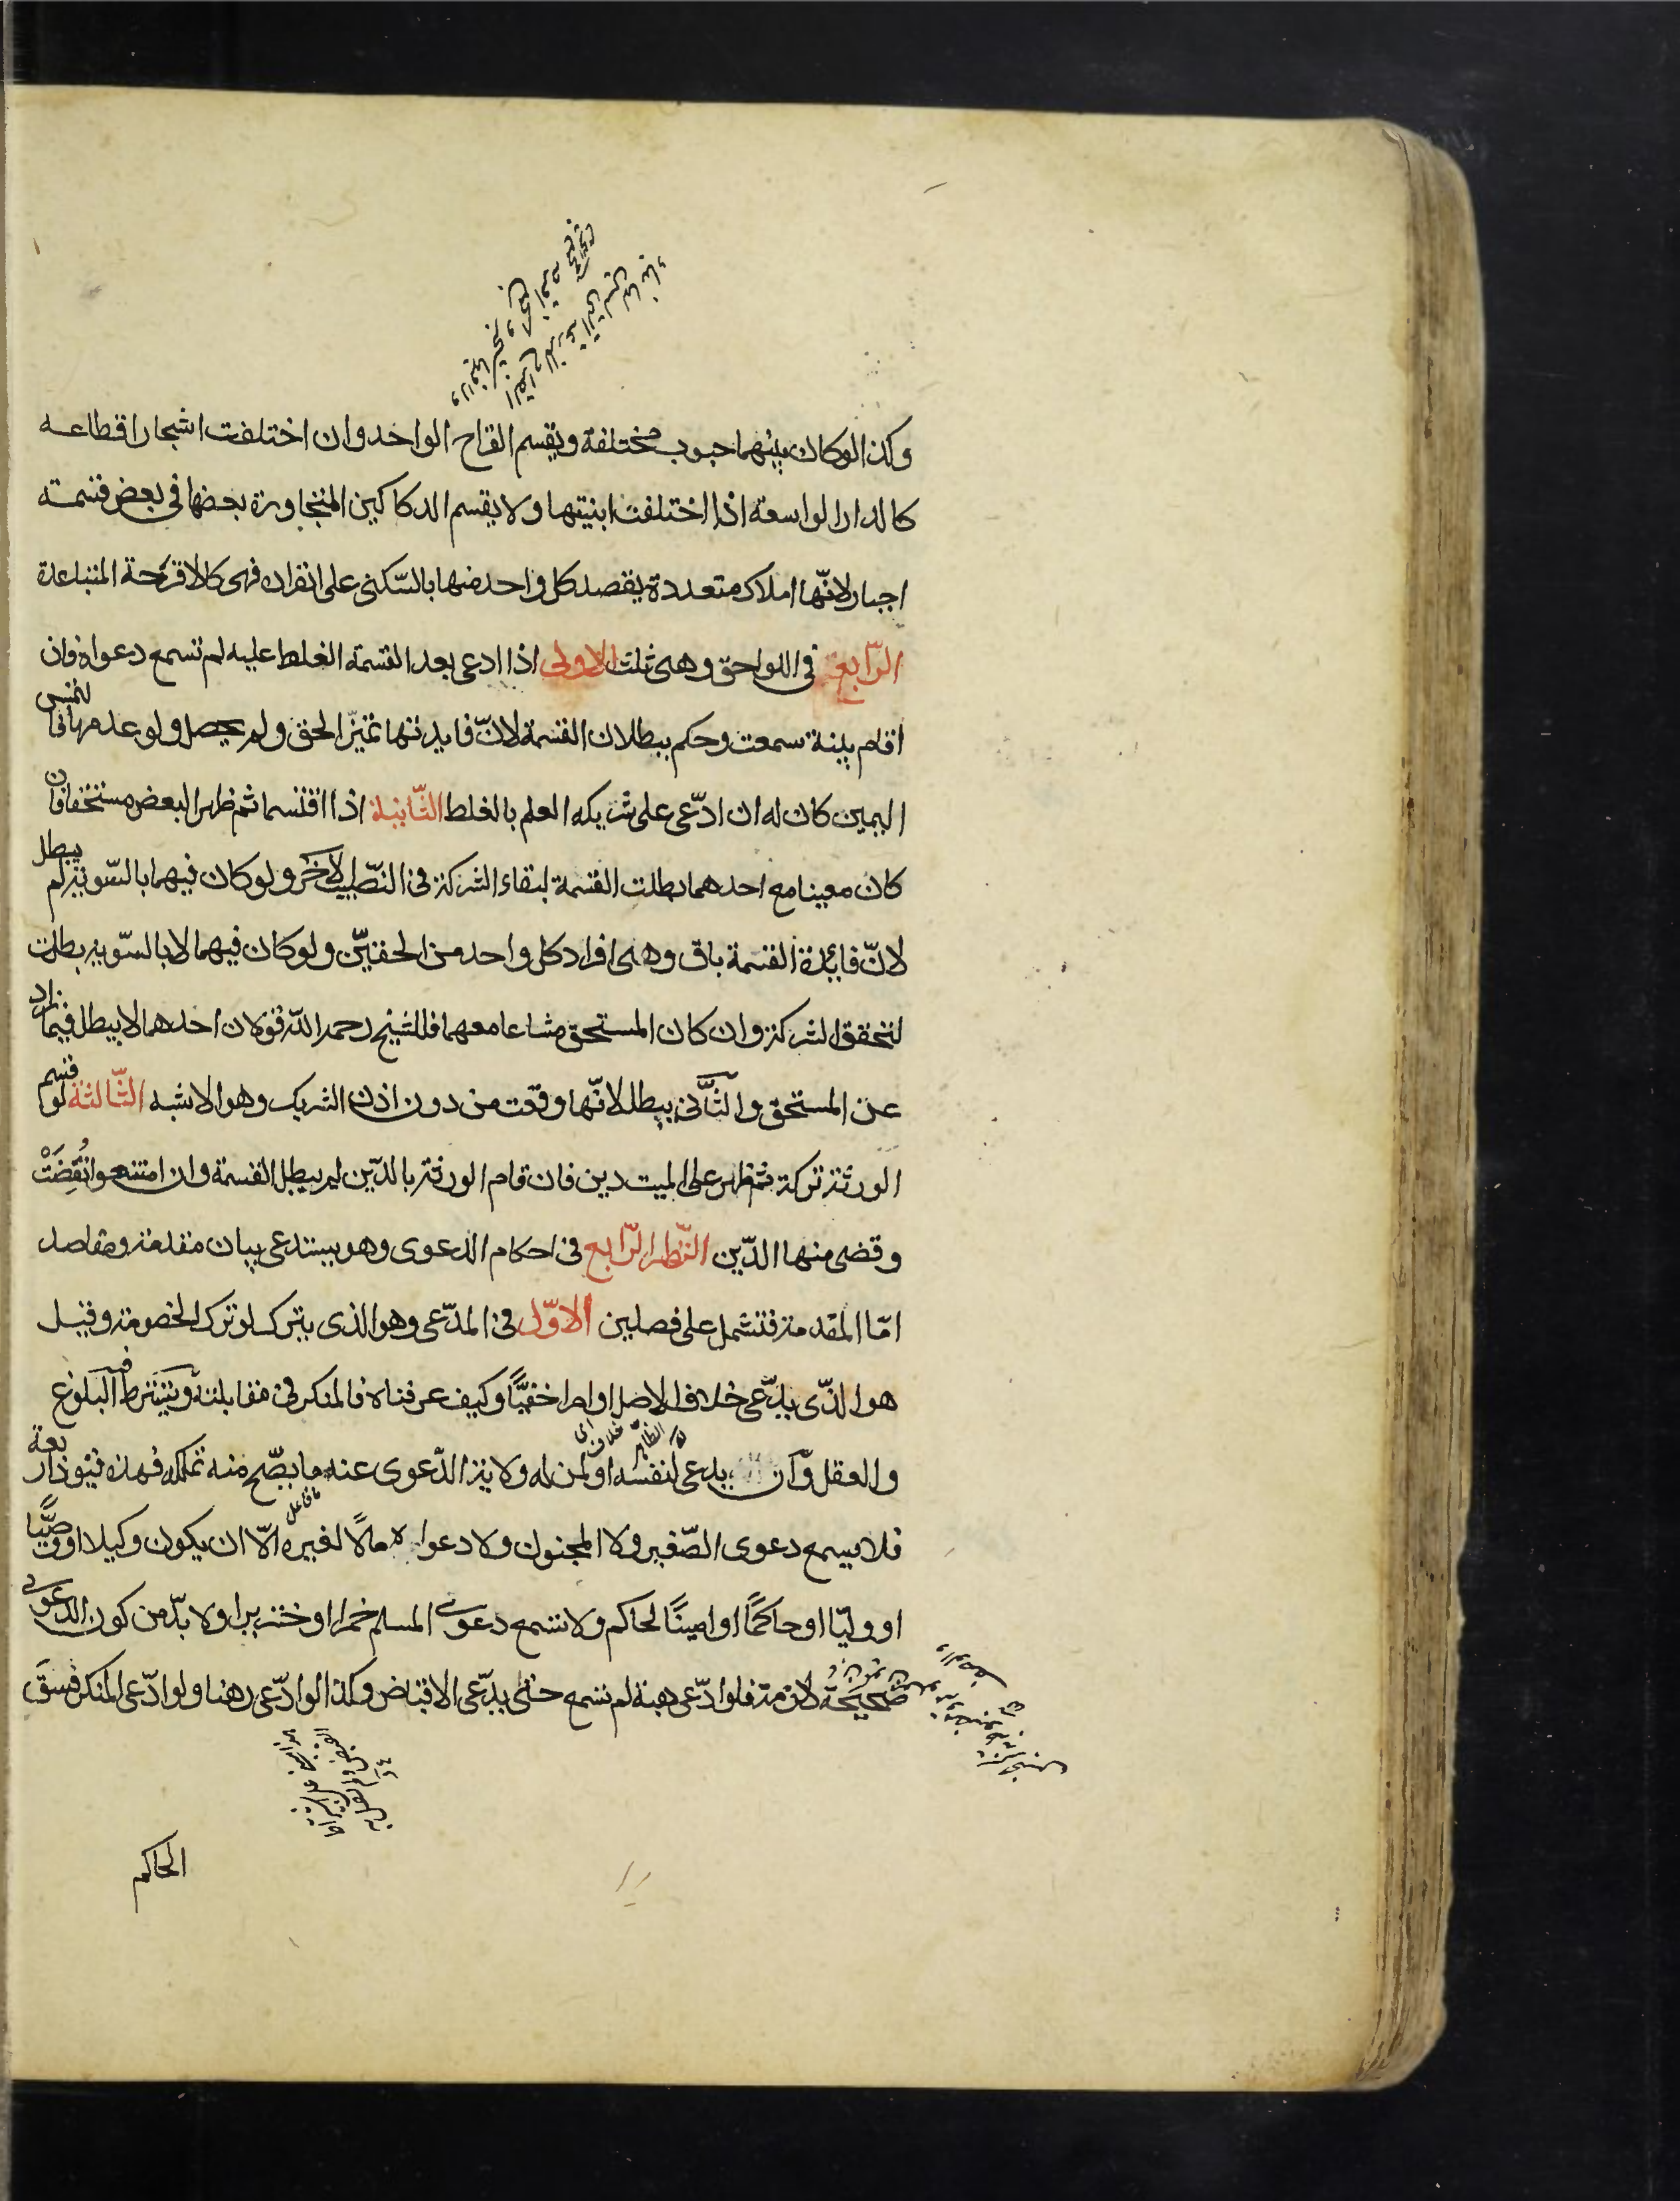 وكذا لو كان بينهما حبوب مختلفة ويقسم القراح الواحد وان اختلفت اشجار اقطاعه
كالدار الواسعة اذا اختلفت ابنيتها ولا يقسم الدكاكين المتجاورة بعضها في بعض قسمة
اجبار لانّها املاك متعددة يقصد كل واحد منها بالسّكنى على انفراده فهى كالاقرحة المتباعدة
الرّابع فى اللواحق وهى ثلث الاولى اذا ادعى بعد القسمة الغلط عليه لم تسمع دعواه فان
اقام بينة سمعت وحكم ببطلان القسمة لانّ فايدتها تميّز الحق ولم يحصل ولو عدمها فالتمس
اليمين كان له ان ادّعى على شريكه العلم بالغلط الثّانية اذا اقتسما ثم ظهر البعض مستحقا فان
كان معينا مع احدهما بطلت القسمة لبقاء الشركة فى النّصيب الاخر ولو كان فيهما بالسّوية لم يبطل
لانّ فائدة القسمة باق وهى افراد كل واحد من الحقيّن ولو كان فيهما لا بالسّوية بطلت
لتحقق الشركة وان كان المستحق مشاعا معهما فللشيخ رحمه اللّه قولان احدهما لا يبطل فيما زاد
عن المستحق والثّانى يبطل لانّها وقعت من دون اذن الشريك وهو الاشبه الثّالثة لو قسم
الورثة تركة ثم ظهر على الميت دين فان قام الورثة بالدّين لم يبطل القسمة وان امتنعوا نُقِضَتْ
وقضى منها الدّين النّظر الرّابع فى احكام الدعوى وهو يستدعى بيان مقدمة ومقاصد
امّا المقدمة فتشمل على فصلين الاوّل فى المدّعى وهو الذى يترك لو ترك الخصومة وقيل
هو الذّى يدّعى خلاف الاصل او امرا خفيًّا وكيف عرفناه فالمنكر فى مقابلته ويشترط فيه البلوغ
والعقل وان يدعى لنفسه او لمن له ولاية الدّعوى عنه ما يصّح منه تملكه فهذه قيود اربعة
فلا يسمع دعوى الصّغير ولا المجنون ولا دعواه مالًا لغيره الّا ان يكون وكيلا او وصيًّا
او وليّا او حاكمًا او امينًا لحاكم ولا تسمع دعوى المسلم خمرا او خنزيرا ولا بدّ من كون الدعوى
صحيحة لازمة فلو ادّعى هبة لم تسمع حتى يدّعى الاقباض وكذا لو ادّعى رهنا ولو ادّعى المنكر فسق
الحاكم